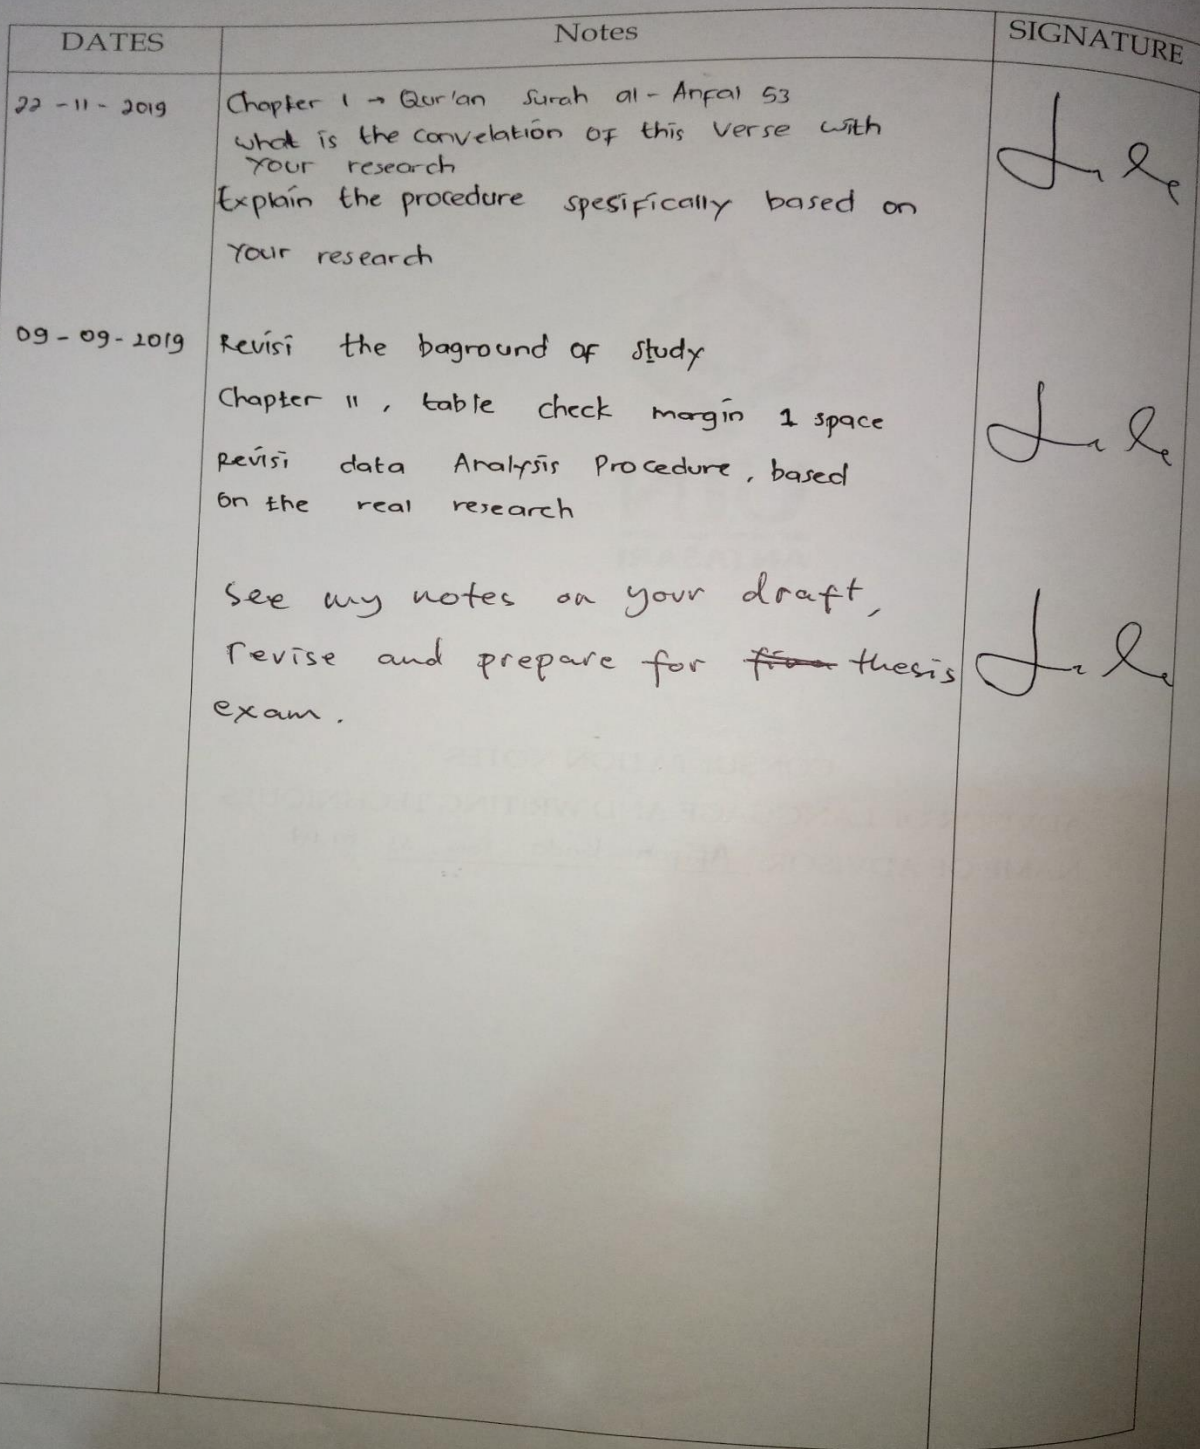 DATES Notes SIGNATURE
22-11-2019 Chapter 1 → Qur'an Surah al-Anfal 53
what is the convelation of this verse with
Your research
Explain the procedure spesifically based on
Your research
09-09-2019 Revisi the baground of study
Chapter 11, table check margin 1 space
Revisi data Analysis Procedure, based
on the real research
see my notes on your draft,
revise and prepare for thesis
exam.